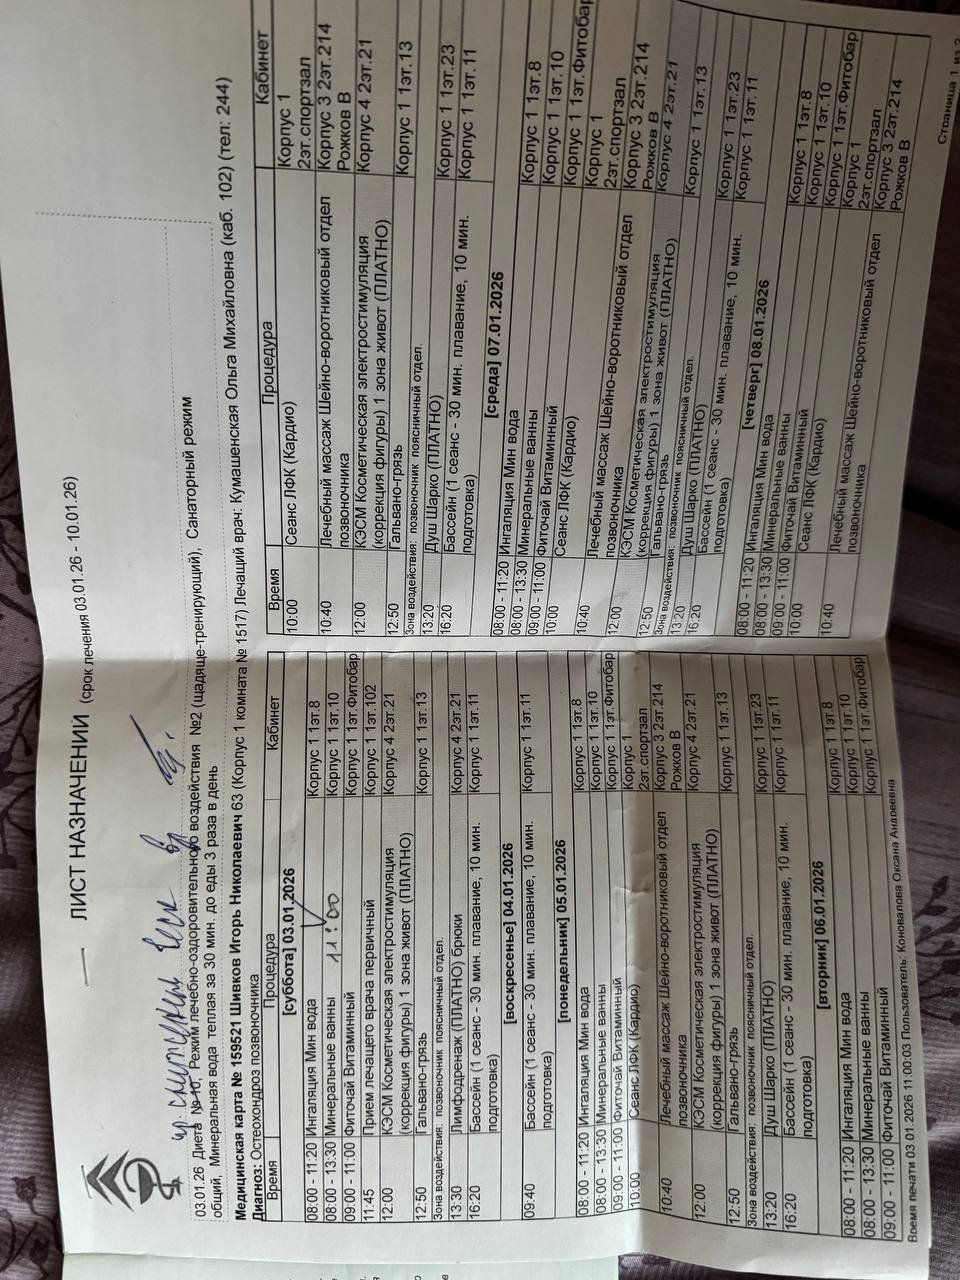 ЛИСТ НАЗНАЧЕНИЙ (срок лечения 03.01.26 - 10.01.26)
03.01.26 Диета №10, Режим лечебно-оздоровительного воздействия №2 (щадяще-тренирующий), Санаторный режим
общий, Минеральная вода теплая за 30 мин. до еды 3 раза в день
Медицинская карта № 159521 Шивков Игорь Николаевич 63 (Корпус 1 комната № 1517) Лечащий врач: Кумашенская Ольга Михайловна (каб. 102) (тел: 244)
Диагноз: Остеохондроз позвоночника
Время Процедура Кабинет
[суббота] 03.01.2026
08:00 - 11:20 Ингаляция Мин вода Корпус 1 1эт.8
08:00 - 13:30 Минеральные ванны 11:00 Корпус 1 1эт.10
09:00 - 11:00 Фиточай Витаминный Корпус 1 1эт.Фитобар
11:45 Прием лечащего врача первичный Корпус 1 1эт.102
12:00 КЭСМ Косметическая электростимуляция Корпус 4 2эт.21
(коррекция фигуры) 1 зона живот (ПЛАТНО)
12:50 Гальвано-грязь Корпус 1 1эт.13
Зона воздействия: позвоночник поясничный отдел.
13:30 Лимфодренаж (ПЛАТНО) брюки Корпус 4 2эт.21
16:20 Бассейн (1 сеанс - 30 мин. плавание, 10 мин. Корпус 1 1эт.11
подготовка)
[воскресенье] 04.01.2026
09:40 Бассейн (1 сеанс - 30 мин. плавание, 10 мин. Корпус 1 1эт.11
подготовка)
[понедельник] 05.01.2026
08:00 - 11:20 Ингаляция Мин вода Корпус 1 1эт.8
08:00 - 13:30 Минеральные ванны Корпус 1 1эт.10
09:00 - 11:00 Фиточай Витаминный Корпус 1 1эт.Фитобар
10:00 Сеанс ЛФК (Кардио) Корпус 1
2эт.спортзал
10:40 Лечебный массаж Шейно-воротниковый отдел Корпус 3 2эт.214
позвоночника Рожков В
12:00 КЭСМ Косметическая электростимуляция Корпус 4 2эт.21
(коррекция фигуры) 1 зона живот (ПЛАТНО)
12:50 Гальвано-грязь Корпус 1 1эт.13
Зона воздействия: позвоночник поясничный отдел.
13:20 Душ Шарко (ПЛАТНО) Корпус 1 1эт.23
16:20 Бассейн (1 сеанс - 30 мин. плавание, 10 мин. Корпус 1 1эт.11
подготовка)
[вторник] 06.01.2026
08:00 - 11:20 Ингаляция Мин вода Корпус 1 1эт.8
08:00 - 13:30 Минеральные ванны Корпус 1 1эт.10
09:00 - 11:00 Фиточай Витаминный Корпус 1 1эт.Фитобар
Время печати 03.01.2026 11:00:03 Пользователь: Коновалова Оксана Андреевна
Время Процедура Кабинет
10:00 Сеанс ЛФК (Кардио) Корпус 1
2эт.спортзал
10:40 Лечебный массаж Шейно-воротниковый отдел Корпус 3 2эт.214
позвоночника Рожков В
12:00 КЭСМ Косметическая электростимуляция Корпус 4 2эт.21
(коррекция фигуры) 1 зона живот (ПЛАТНО)
12:50 Гальвано-грязь Корпус 1 1эт.13
Зона воздействия: позвоночник поясничный отдел.
13:20 Душ Шарко (ПЛАТНО) Корпус 1 1эт.23
16:20 Бассейн (1 сеанс - 30 мин. плавание, 10 мин. Корпус 1 1эт.11
подготовка)
[среда] 07.01.2026
08:00 - 11:20 Ингаляция Мин вода Корпус 1 1эт.8
08:00 - 13:30 Минеральные ванны Корпус 1 1эт.10
09:00 - 11:00 Фиточай Витаминный Корпус 1 1эт.Фитобар
10:00 Сеанс ЛФК (Кардио) Корпус 1
2эт.спортзал
10:40 Лечебный массаж Шейно-воротниковый отдел Корпус 3 2эт.214
позвоночника Рожков В
12:00 КЭСМ Косметическая электростимуляция Корпус 4 2эт.21
(коррекция фигуры) 1 зона живот (ПЛАТНО)
12:50 Гальвано-грязь Корпус 1 1эт.13
Зона воздействия: позвоночник поясничный отдел.
13:20 Душ Шарко (ПЛАТНО) Корпус 1 1эт.23
16:20 Бассейн (1 сеанс - 30 мин. плавание, 10 мин. Корпус 1 1эт.11
подготовка)
[четверг] 08.01.2026
08:00 - 11:20 Ингаляция Мин вода Корпус 1 1эт.8
08:00 - 13:30 Минеральные ванны Корпус 1 1эт.10
09:00 - 11:00 Фиточай Витаминный Корпус 1 1эт.Фитобар
10:00 Сеанс ЛФК (Кардио) Корпус 1
2эт.спортзал
10:40 Лечебный массаж Шейно-воротниковый отдел Корпус 3 2эт.214
позвоночника Рожков В
Страница 1 из 2